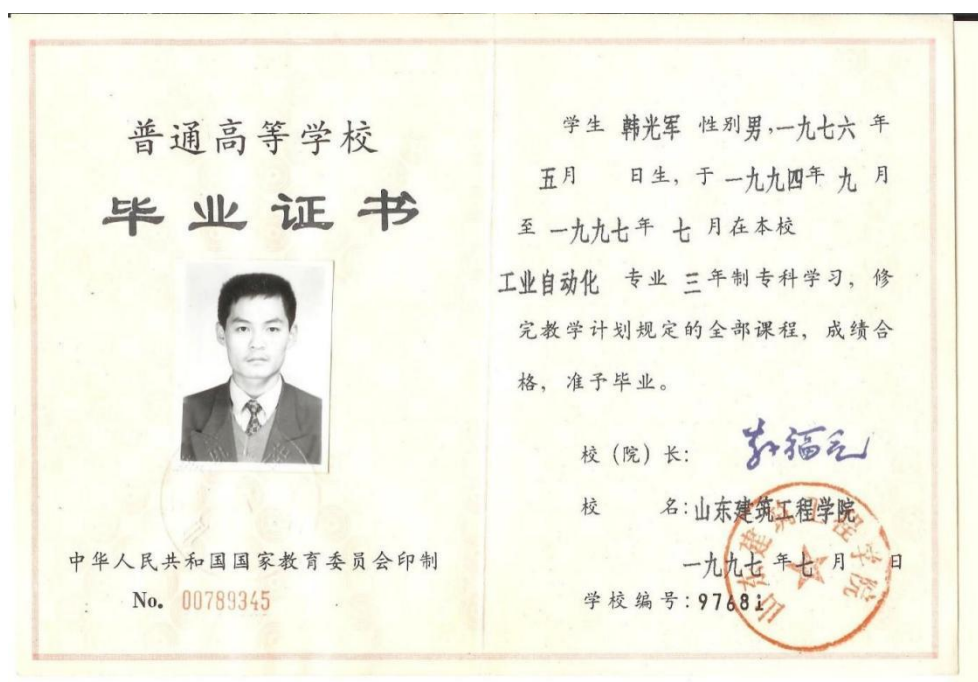 普通高等学校
毕业证书
中华人民共和国国家教育委员会印制
No. 00789345
学生 韩光军 性别男,一九七六 年
五月 日生, 于 一九九四年 九 月
至 一九九七年 七 月在本校
工业自动化 专业 三年制专科学习, 修
完教学计划规定的全部课程, 成绩合
格, 准予毕业。
校 (院) 长:
校 名:山东建筑工程学院
一九九七 年七 月 日
学校编号:97681
山东建筑工程学院